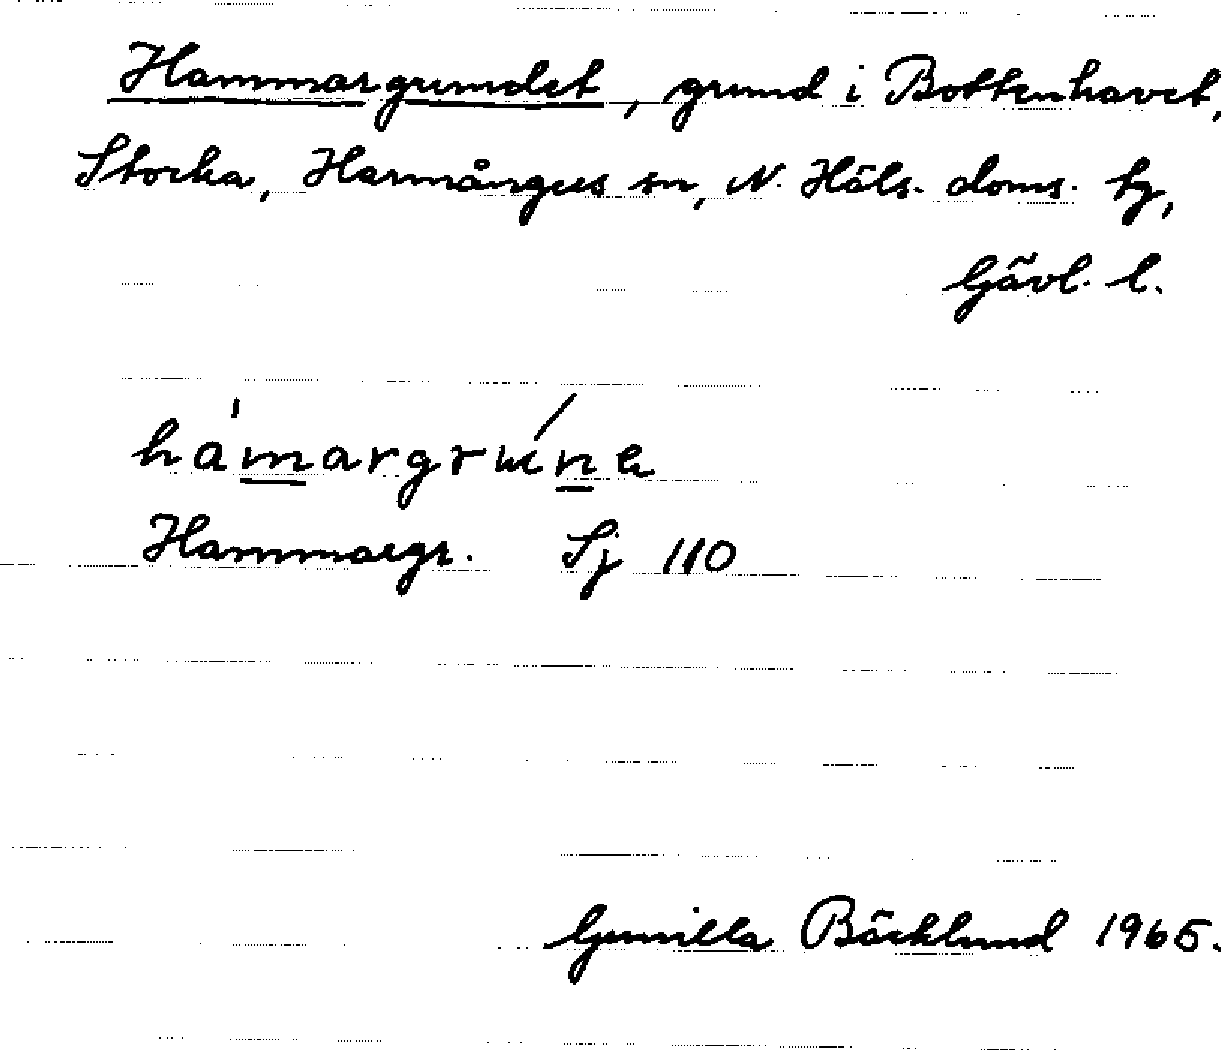 Hammargrundet, grund i Bottenhavet,
Stocka, Harmångers sn, N. Häls. doms. tg,
Gävl. l.
hámargrúne
Hammargr. Sj 110
Gunilla Bäcklund 1965.